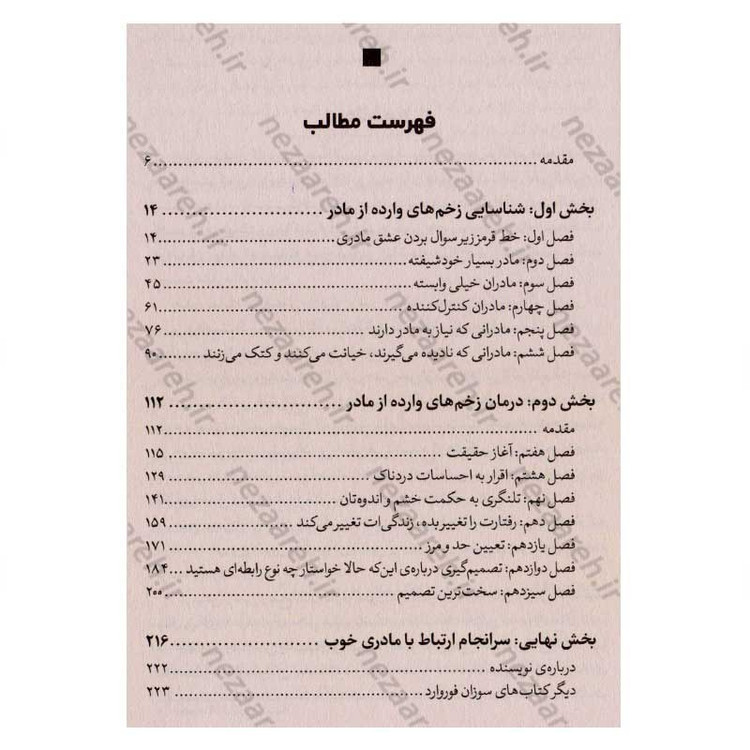 فهرست مطالب
مقدمه ............ ۶
بخش اول: شناسایی زخم‌های وارده از مادر ............ ۱۴
فصل اول: خط قرمز زیر سوال بردن عشق مادری ............ ۱۴
فصل دوم: مادر بسیار خودشیفته ............ ۲۳
فصل سوم: مادران خیلی وابسته ............ ۴۵
فصل چهارم: مادران کنترل‌کننده ............ ۶۱
فصل پنجم: مادرانی که نیاز به مادر دارند ............ ۷۶
فصل ششم: مادرانی که نادیده می‌گیرند، خیانت می‌کنند و کتک می‌زنند ......... ۹۰
بخش دوم: درمان زخم‌های وارده از مادر ............ ۱۱۲
مقدمه ............ ۱۱۲
فصل هفتم: آغاز حقیقت ............ ۱۱۵
فصل هشتم: اقرار به احساسات دردناک ............ ۱۲۹
فصل نهم: تلنگری به حکمت خشم و اندوه‌تان ............ ۱۴۱
فصل دهم: رفتارت را تغییر بده، زندگی‌ات تغییر می‌کند ............ ۱۵۹
فصل یازدهم: تعیین حد و مرز ............ ۱۷۱
فصل دوازدهم: تصمیم‌گیری درباره‌ی این‌که حالا خواستار چه نوع رابطه‌ای هستید ... ۱۸۴
فصل سیزدهم: سخت‌ترین تصمیم ............ ۲۰۰
بخش نهایی: سرانجام ارتباط با مادری خوب ............ ۲۱۶
درباره‌ی نویسنده ............ ۲۲۲
دیگر کتاب‌های سوزان فوروارد ............ ۲۲۳
nezaareh.ir